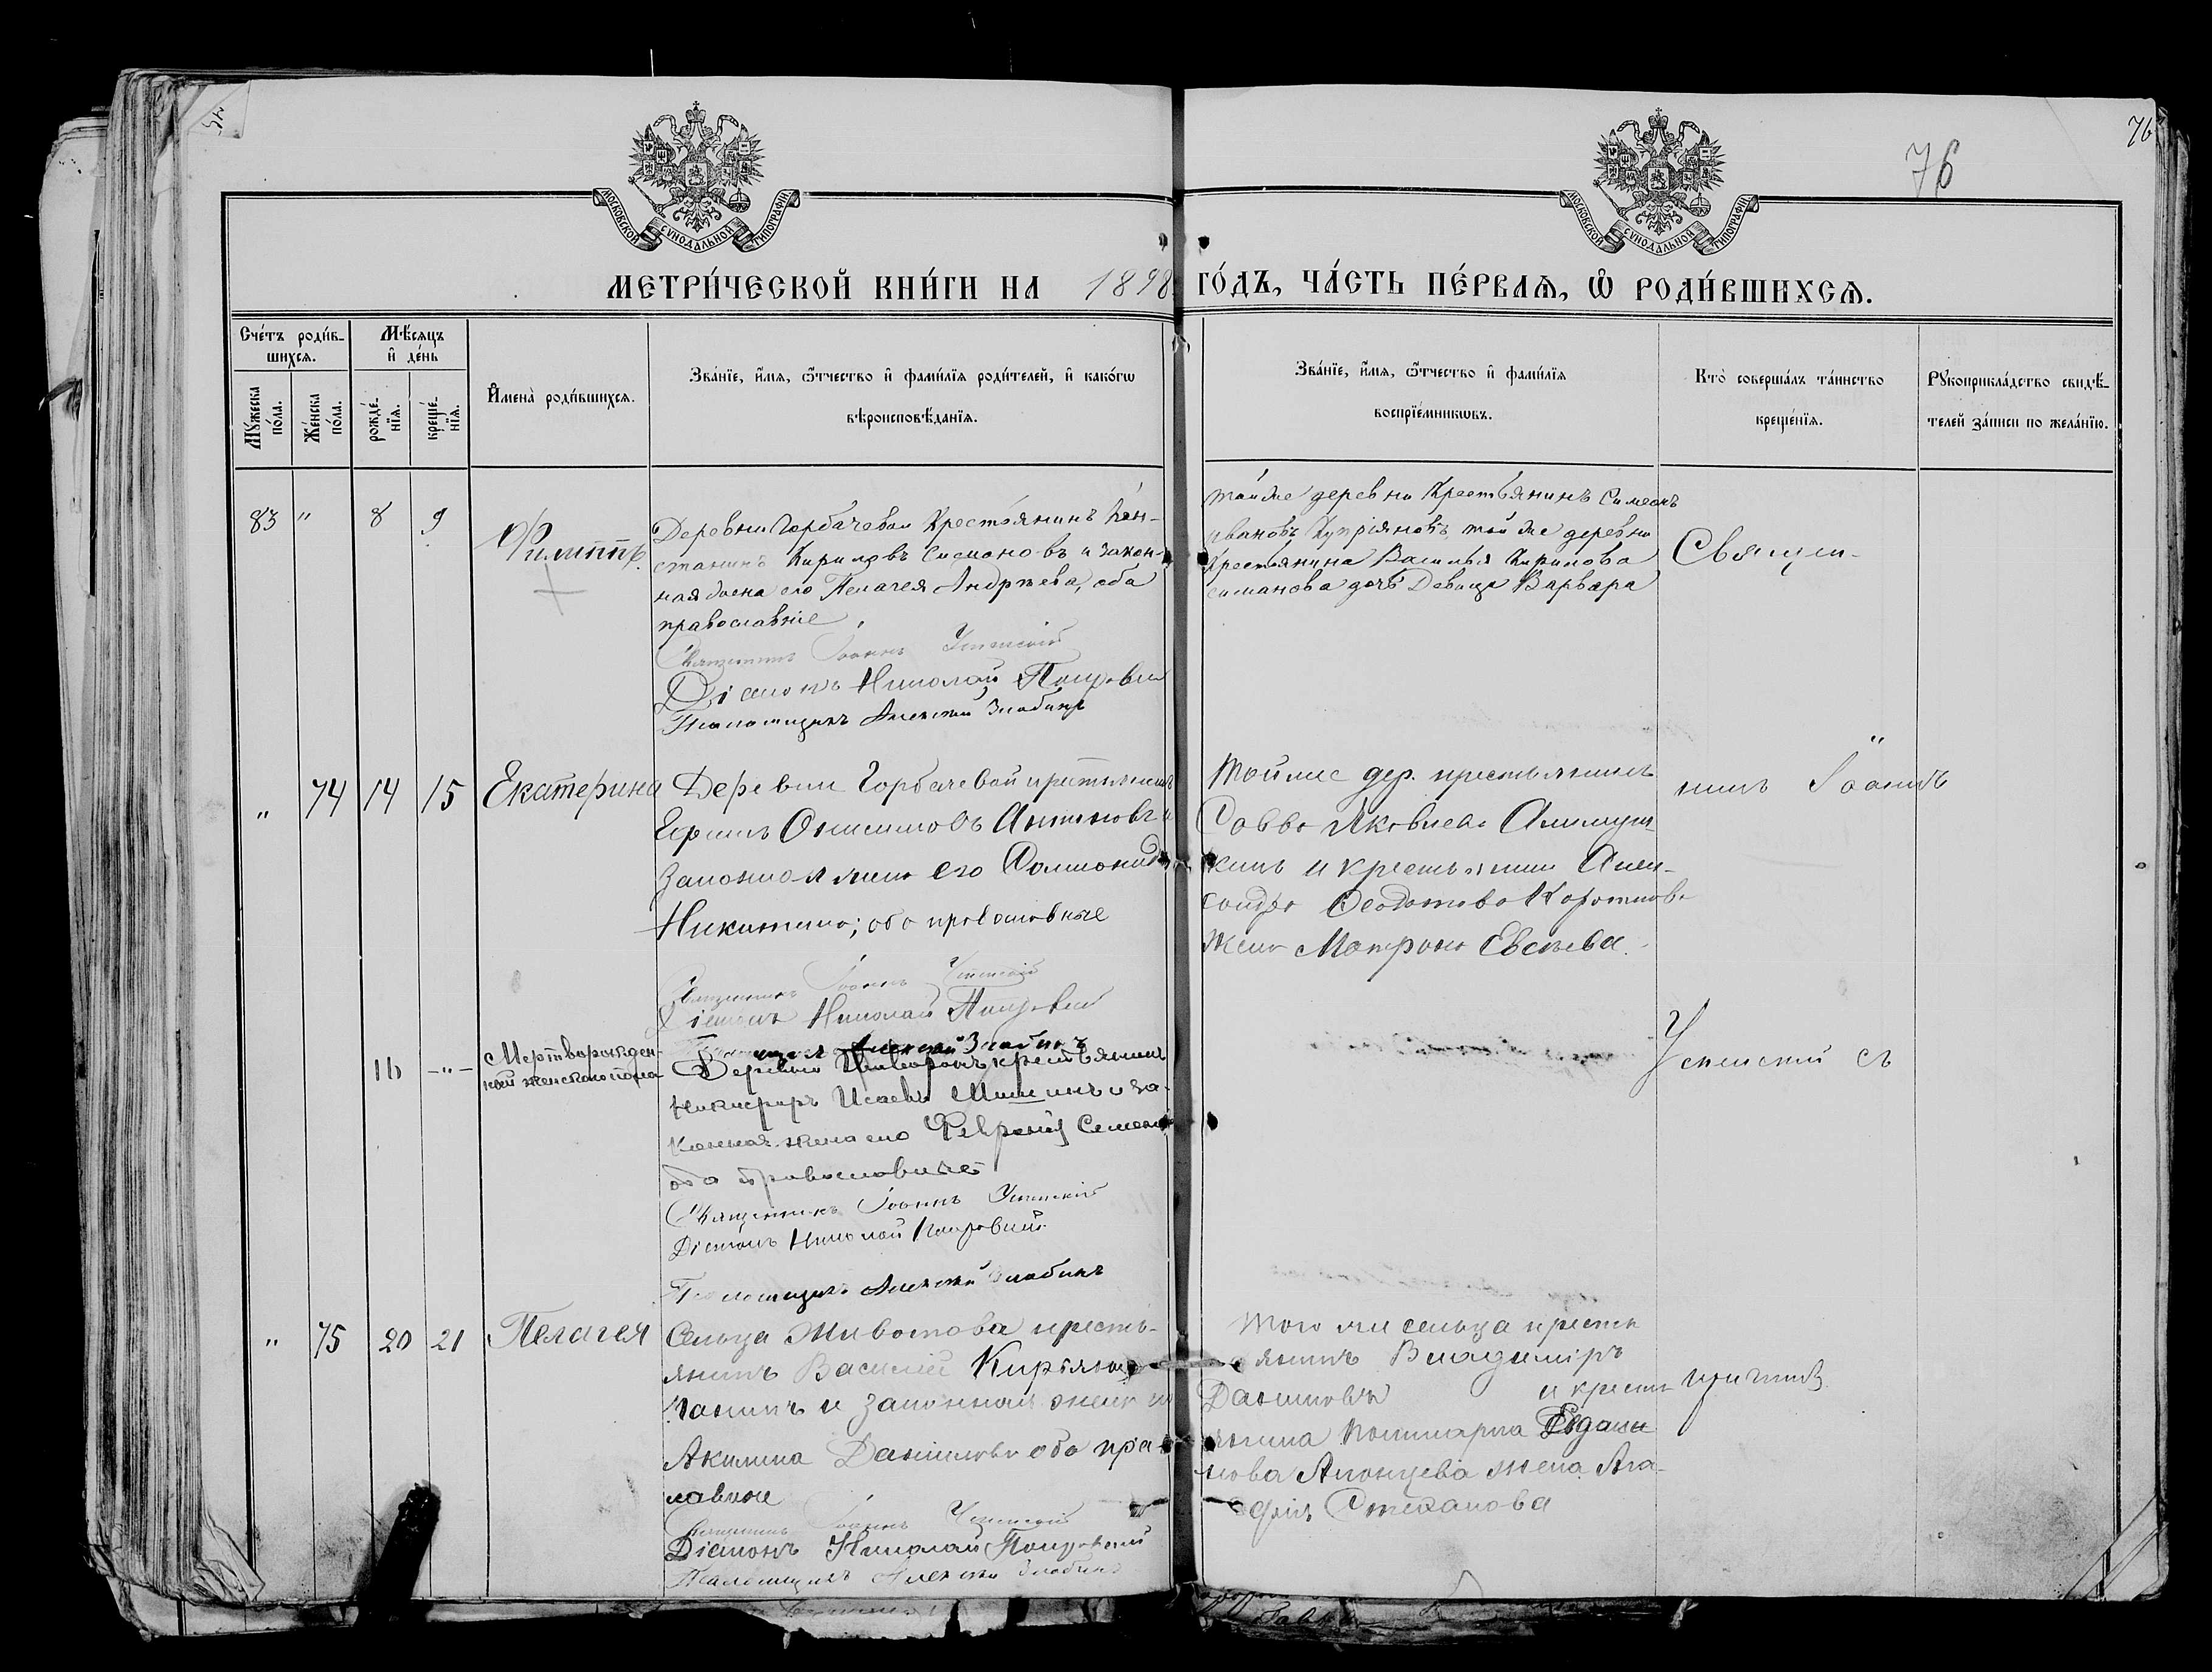 76
76
МОСКОВСКОЙ СѴНОДАЛЬНОЙ ТИПОГРАФІИ.
МОСКОВСКОЙ СѴНОДАЛЬНОЙ ТИПОГРАФІИ.
МЕТРИ́ЧЕСКОЙ КНИ́ГИ НА 1898 ГО́ДЪ, ЧА́СТЬ ПЕ́РВАѦ, Ѡ РОДИ́ВШИХСѦ.
Сче́тъ роди́в-
шихсѧ.
Мѣ́сѧцъ
и҆ де́нь
Мꙋ́жеска
по́ла.
Же́нска
по́ла.
рожде́-
нїѧ.
креще́-
нїѧ.
И҆мена̀ роди́вшихсѧ.
Зва́нїе, и҆́мѧ, ѻ҆́тчество и҆ фами́лїѧ роди́телей, и҆ како́гѡ
вѣроисповѣ́данїѧ.
Зва́нїе, и҆́мѧ, ѻ҆́тчество и҆ фами́лїѧ
воспрїе́мникѡвъ.
Кто̀ соверша́лъ та́инство
креще́нїѧ.
Рꙋкоприкла́дство свидѣ́-
телей за́писи по жела́нїю.
83 " 8 9
Филиппъ.
Деревни Горбачевой Крестьянинъ Кон-
стантинъ Кириловъ Симановъ и закон-
ная жена его Пелагея Андреева, оба
православніе
Священникъ Іоаннъ Успенскій
Діаконъ Николай Покровскій
Псаломщикъ Алексѣй Злобинъ
тойже деревни Крестьянинъ Симеонъ
Ивановъ Купріяновъ, той же деревни
Крестьянина Василья Кирилова
Симанова дочь Девица Варвара
Священ-
" 74 14 15
Екатерина
Деревни Горбачевой крестьянинъ
Онисимовъ Антоновъ и
законная жена его Соломонида
Никитина; оба православные
Священникъ Іоаннъ Успенскій
Діаконъ Николай Покровскій
Алексѣй Злобинъ
Тойже дер. крестьянинъ
Савва Яковлевъ
и крестьянина Алек-
сандра Феодотова
жена Матрона Евсеева.
никъ Іоаннъ
16 -"-
Мертворожден-
ный женскаго пола
Деревни крестьянинъ
Никифоръ Исаевъ Мишинъ и за-
конная жена его Феврония Семенова
оба православные
Священникъ Іоаннъ Успенскій
Діаконъ Николай Покровскій
Псаломщикъ Алексѣй Злобинъ
Успенскій съ
" 75 20 21
Пелагея
Сельца Животова кресть-
янинъ Василій
и законная жена его
Акилина Данилова оба правос-
лавные
Священникъ Іоаннъ Успенскій
Діаконъ Николай Покровскій
Псаломщикъ Алексѣй Злобинъ
Того же сельца кресть
янинъ Владиміръ
Даниловъ и кресть-
янина Евдоки-
мова жена Ага-
фія Степанова
причтомъ